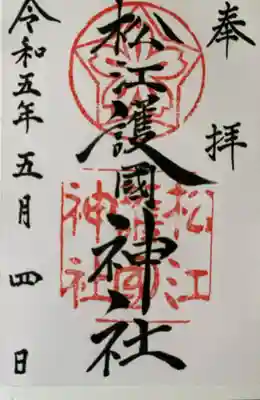 奉拝
松江護國神社
松江護國神社
令和五年五月四日